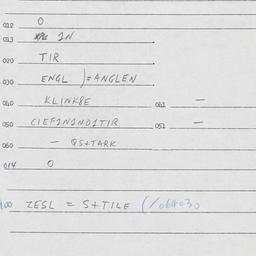 012 0
013 IN
020 TIR
030 ENGL )=ANGLEN
040 KLINK8E 041 —
050 CIEFININDITIR 051 —
060 — QS+TARK
014 0
100 ZESL = S+TILE (/064030